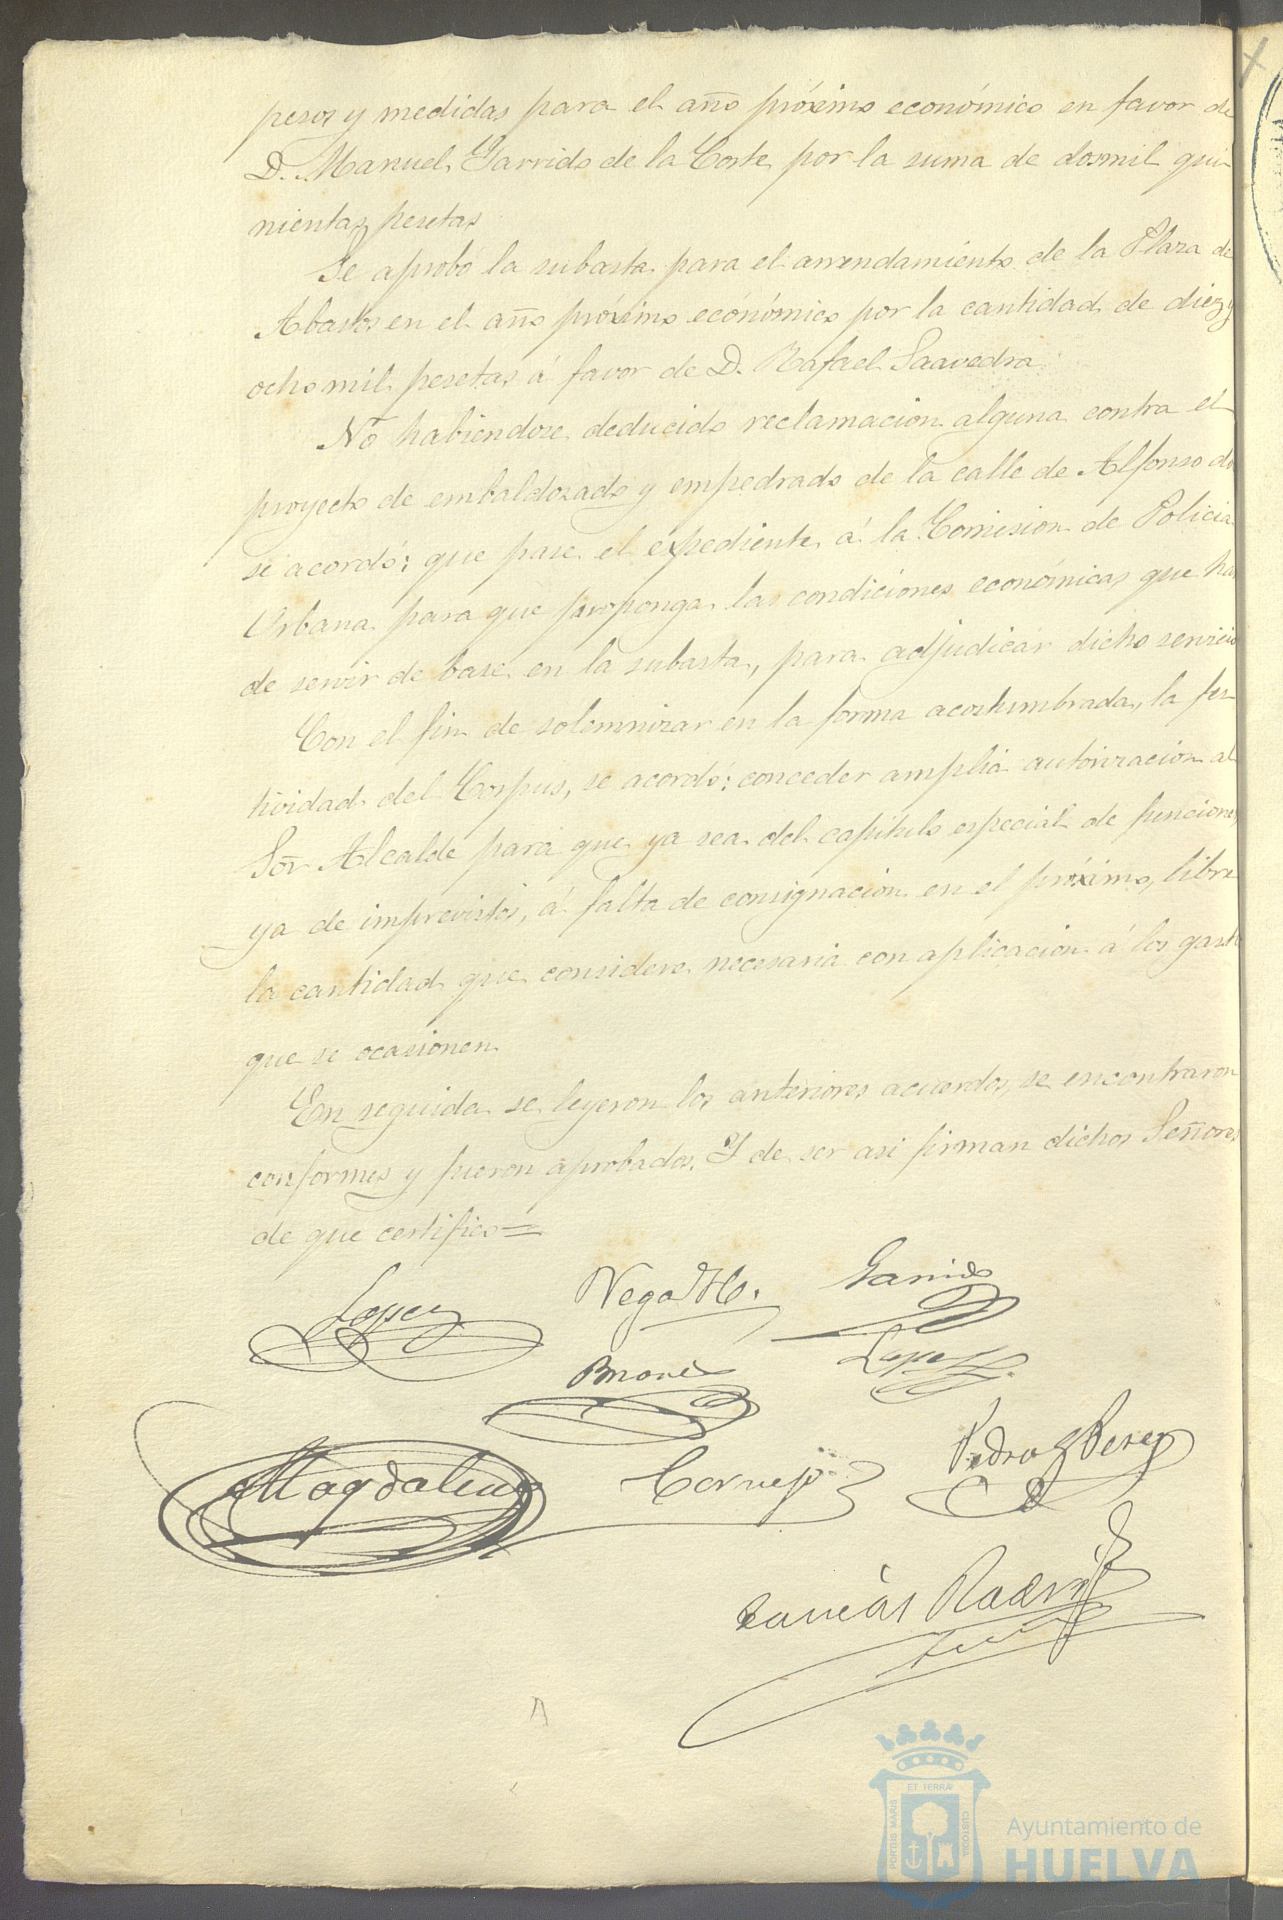 pesos y medidas para el año próximo económico en favor de
D. Manuel Garrido de la Corte por la suma de dosmil qui-
nientas pesetas
Se aprobó la subasta para el arrendamiento de la Plaza de
Abastos en el año próximo económico por la cantidad de diez y
ocho mil pesetas á favor de D. Rafael Saavedra
No habiendose deducido reclamacion alguna contra el
proyecto de embaldosado y empedrado de la calle de Alfonso do
se acordó; que pase el expediente á la Comision de Policia
Urbana para que proponga las condiciones económicas que han
de servir de base en la subasta, para adjudicar dicho servicio
Con el fin de solemnizar en la forma acostumbrada, la fes-
tividad del Corpus, se acordó; conceder amplia autorizacion al
Sor Alcalde para que ya sea del capitulo especial de funciones
ya de imprevistos, á falta de consignacion en el próximo, libre
la cantidad que considere necesaria con aplicacion á los gast
que se ocasionen
En seguida se leyeron los anteriores acuerdos, se encontraron
conformes y fueron aprobados. Y de ser asi firman dichos Señores
de que certifico=
Lopez
Vega
Garrido
Lopez
Magdalena
Cornejo
Pedro Perez
ET TERRA
PORTUS MARIS
CUSTODIA
Ayuntamiento de
HUELVA